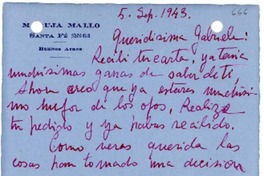 MARUJA MALLO
SANTA FÉ 2861
BUENOS AIRES
5. Sep. 1943.
666
Queridisima Gabriela:
Recibi tu carta, ya tenia
muchisimas ganas de saber de ti,
Ahora creo que ya estaras muchisi
mo mejor de los ojos, Realize
tu pedido y ya habras recibido.
Como veras querida las
cosas han tomado una decision